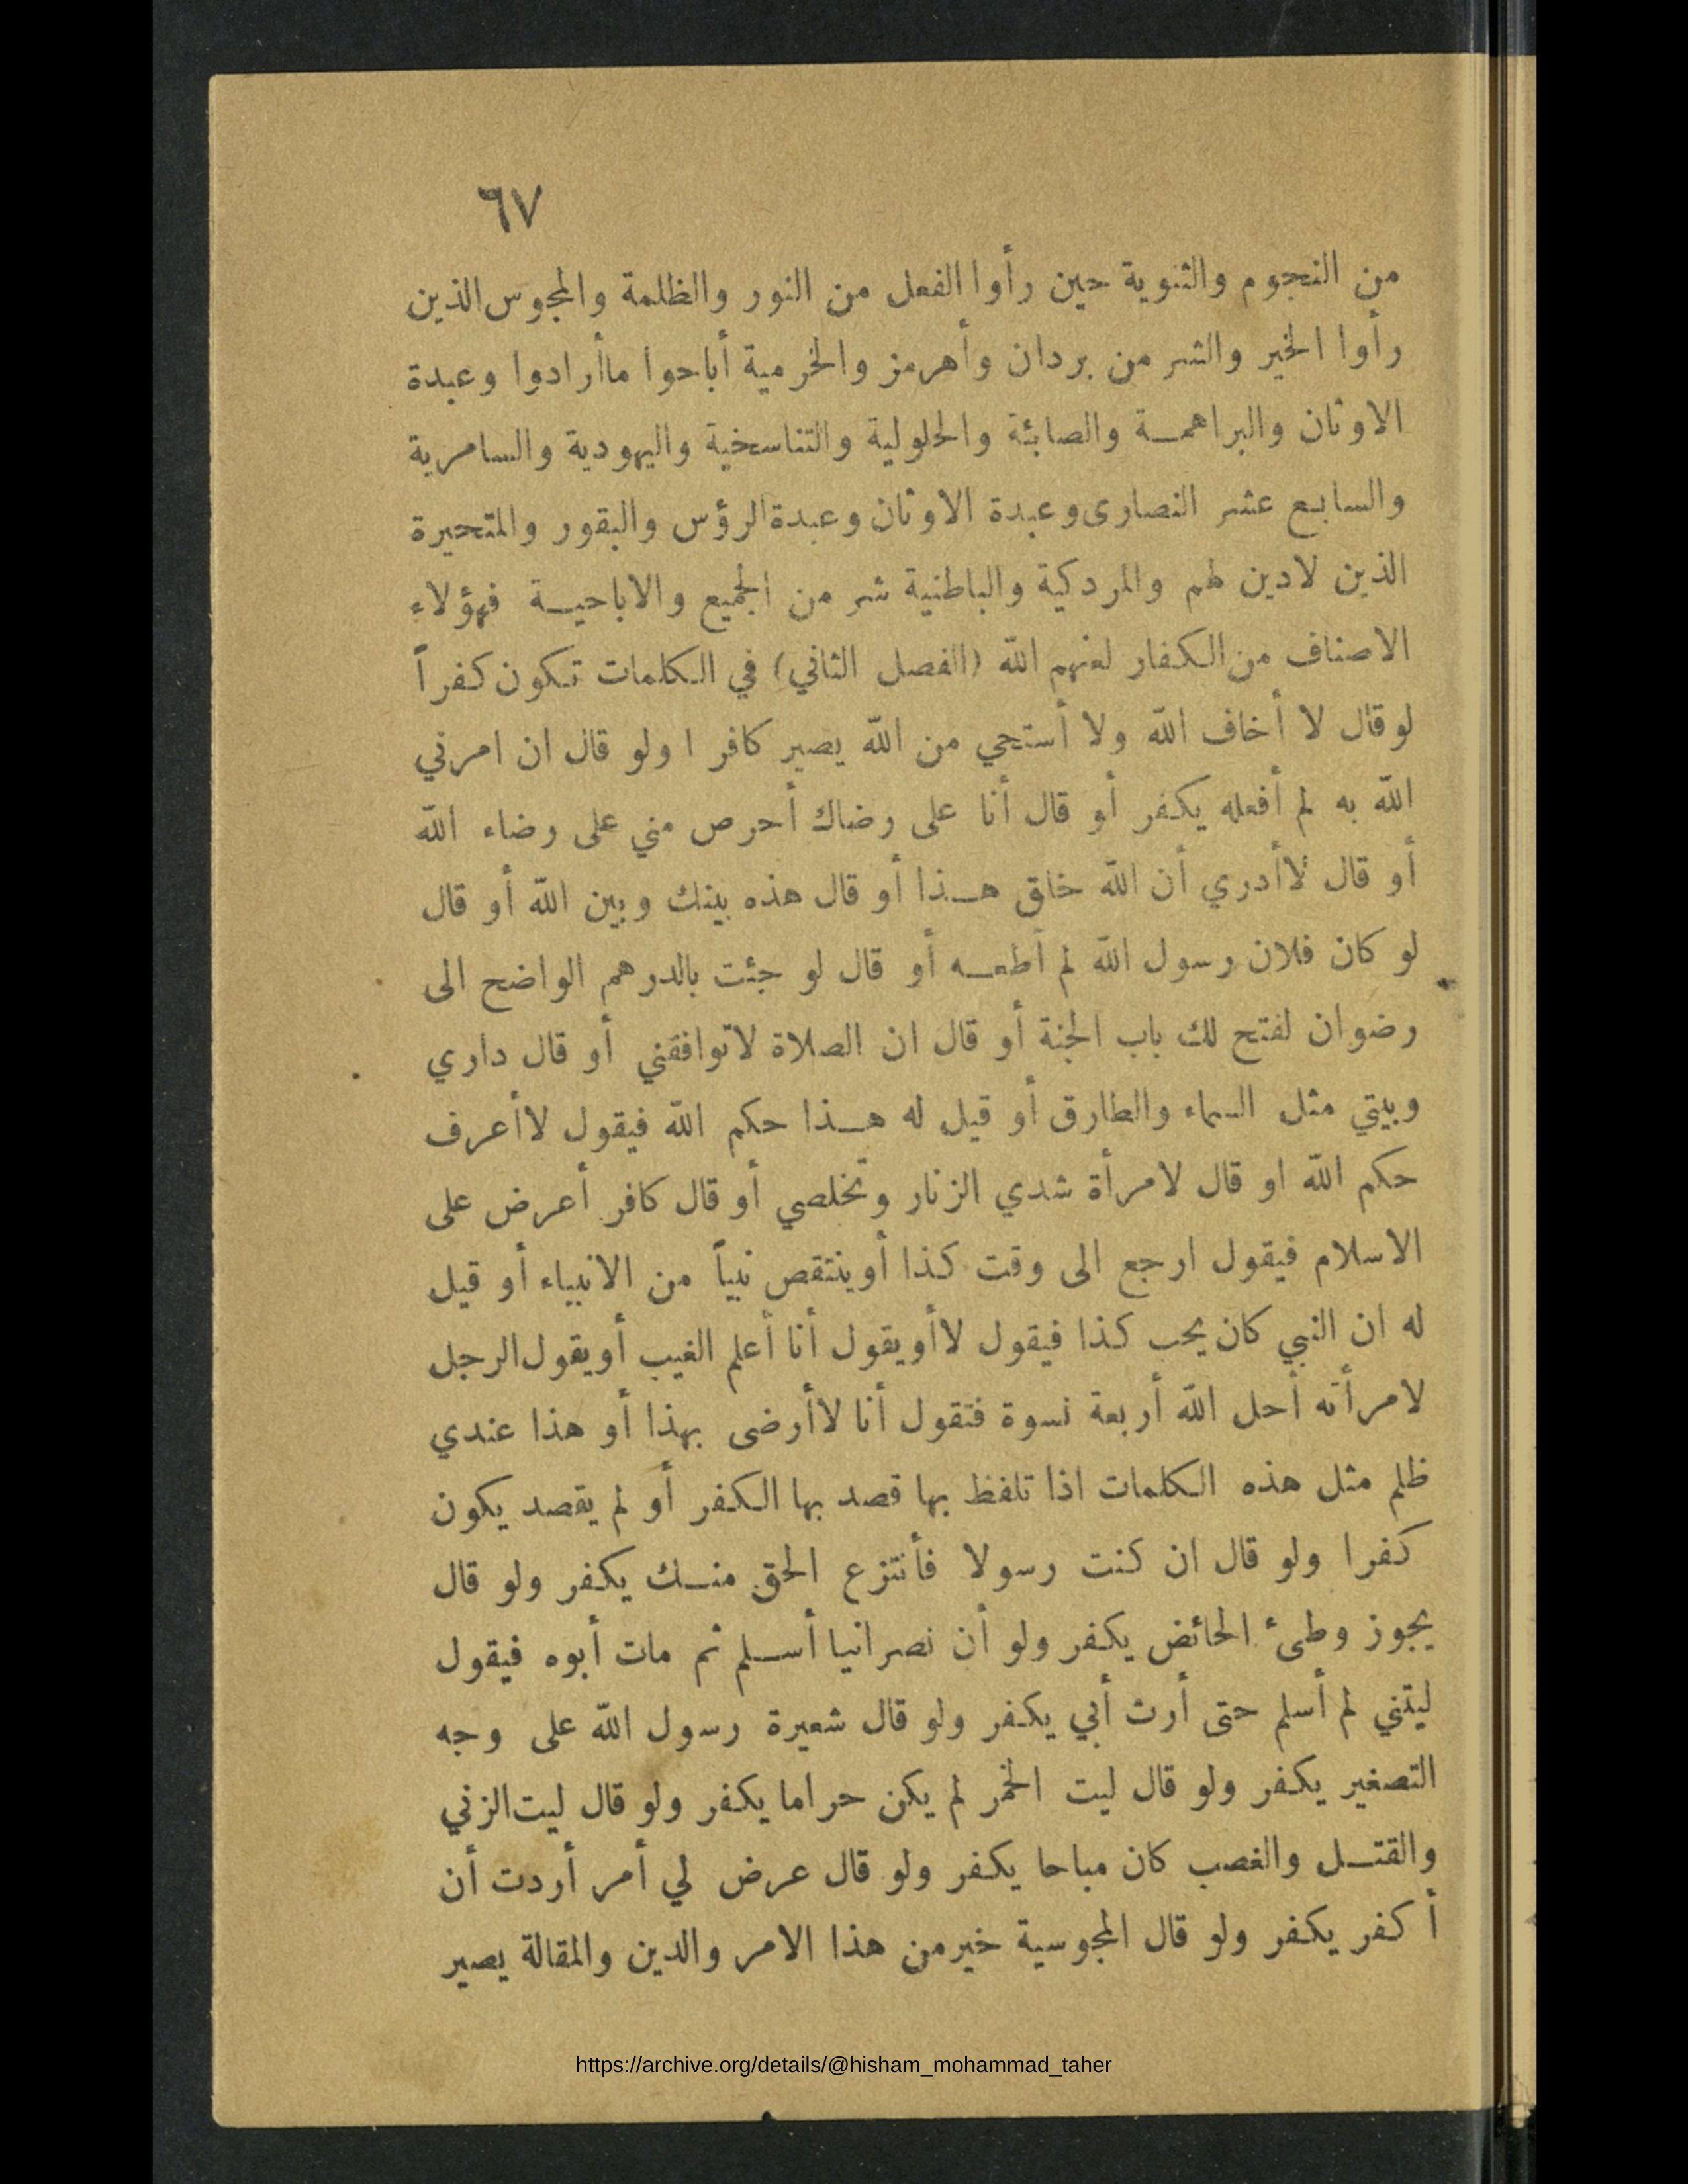 ٦٧
من النجوم والثنوية حين رأوا الفعل من النور والظلمة والمجوس الذين
رأوا الخير والشر من بردان وأهرمز والخرمية أباحوا ماأرادوا وعبدة
الاوثان والبراهمـــة والصابئة والحلولية والتناسخية واليهودية والسامرية
والسابع عشر النصارى وعبدة الاوثان وعبدة الرؤس والبقور والمتحيرة
الذين لادين لهم والمردكية والباطنية شر من الجميع والاباحيـــة فهؤلاء
الاصناف من الكفار لعنهم الله (الفصل الثاني) في الكلمات تكون كفراً
لو قال لا أخاف الله ولا أستحي من الله يصير كافر ا ولو قال ان امرني
الله به لم أفعله يكفر أو قال أنا على رضاك أحرص مني على رضاء الله
أو قال لاأدري أن الله خاق هـــذا أو قال هذه بينك وبين الله أو قال
لو كان فلان رسول الله لم أطعـــه أو قال لو جئت بالدرهم الواضح الى
رضوان لفتح لك باب الجنة أو قال ان الصلاة لاتوافقني أو قال داري
وبيتي مثل السماء والطارق أو قيل له هـــذا حكم الله فيقول لاأعرف
حكم الله او قال لامرأة شدي الزنار وتخلصي أو قال كافر أعرض على
الاسلام فيقول ارجع الى وقت كذا أو ينتقص نبياً من الانبياء أو قيل
له ان النبي كان يحب كذا فيقول لا أو يقول أنا أعلم الغيب أو يقول الرجل
لامرأته أحل الله أربعة نسوة فتقول أنا لاأرضى بهذا أو هذا عندي
ظلم مثل هذه الكلمات اذا تلفظ بها قصد بها الكفر أو لم يقصد يكون
كفرا ولو قال ان كنت رسولا فأنتزع الحق منـــك يكفر ولو قال
يجوز وطىء الحائض يكفر ولو أن نصرانيا أســـلم ثم مات أبوه فيقول
ليتني لم أسلم حتى أرث أبي يكفر ولو قال شعيرة رسول الله على وجه
التصغير يكفر ولو قال ليت الخمر لم يكن حراما يكفر ولو قال ليت الزني
والقتـــل والغصب كان مباحا يكفر ولو قال عرض لي أمر أردت أن
أكفر يكفر ولو قال المجوسية خير من هذا الامر والدين والمقالة يصير
https://archive.org/details/@hisham_mohammad_taher